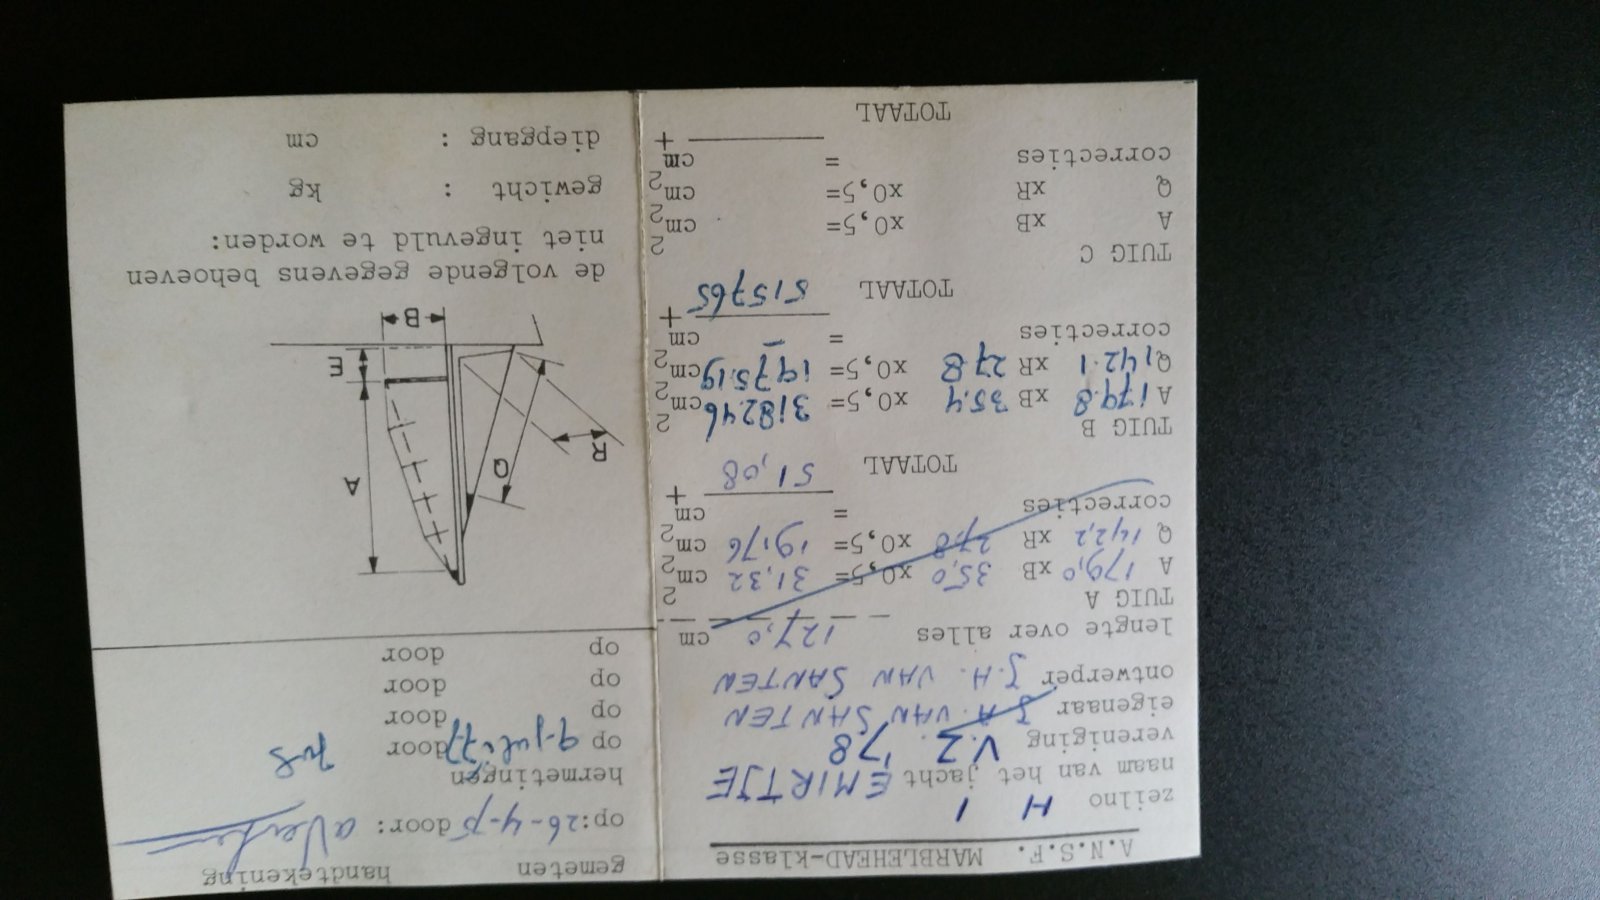 A.N.S.F. MARBLEHEAD-klasse
zeilno H 1
naam van het jacht EMIRTJE
vereniging V.Z. '78
eigenaar J.H. VAN SANTEN
ontwerper J.H. VAN SANTEN
lengte over alles 127,0 cm
TUIG A
A 179,0 xB 35,0 x0,5= 31,32 cm2
Q 142,2 xR 27,8 x0,5= 19,76 cm2
correcties = cm2
+
TOTAAL 51,08
TUIG B
A 179.8 xB 35.4 x0,5= 3182.46 cm2
Q 142.1 xR 27.8 x0,5= 1975.19 cm2
correcties = – cm2
+
TOTAAL 515765
TUIG C
A xB x0,5= cm2
Q xR x0,5= cm2
correcties = cm2
+
TOTAAL
gemeten handtekening
op: 26-4-75 door:
hermetingen
op 9-juli-'77 door
op door
op door
op door
A
Q
R
E
B
de volgende gegevens behoeven
niet ingevuld te worden:
gewicht : kg
diepgang : cm